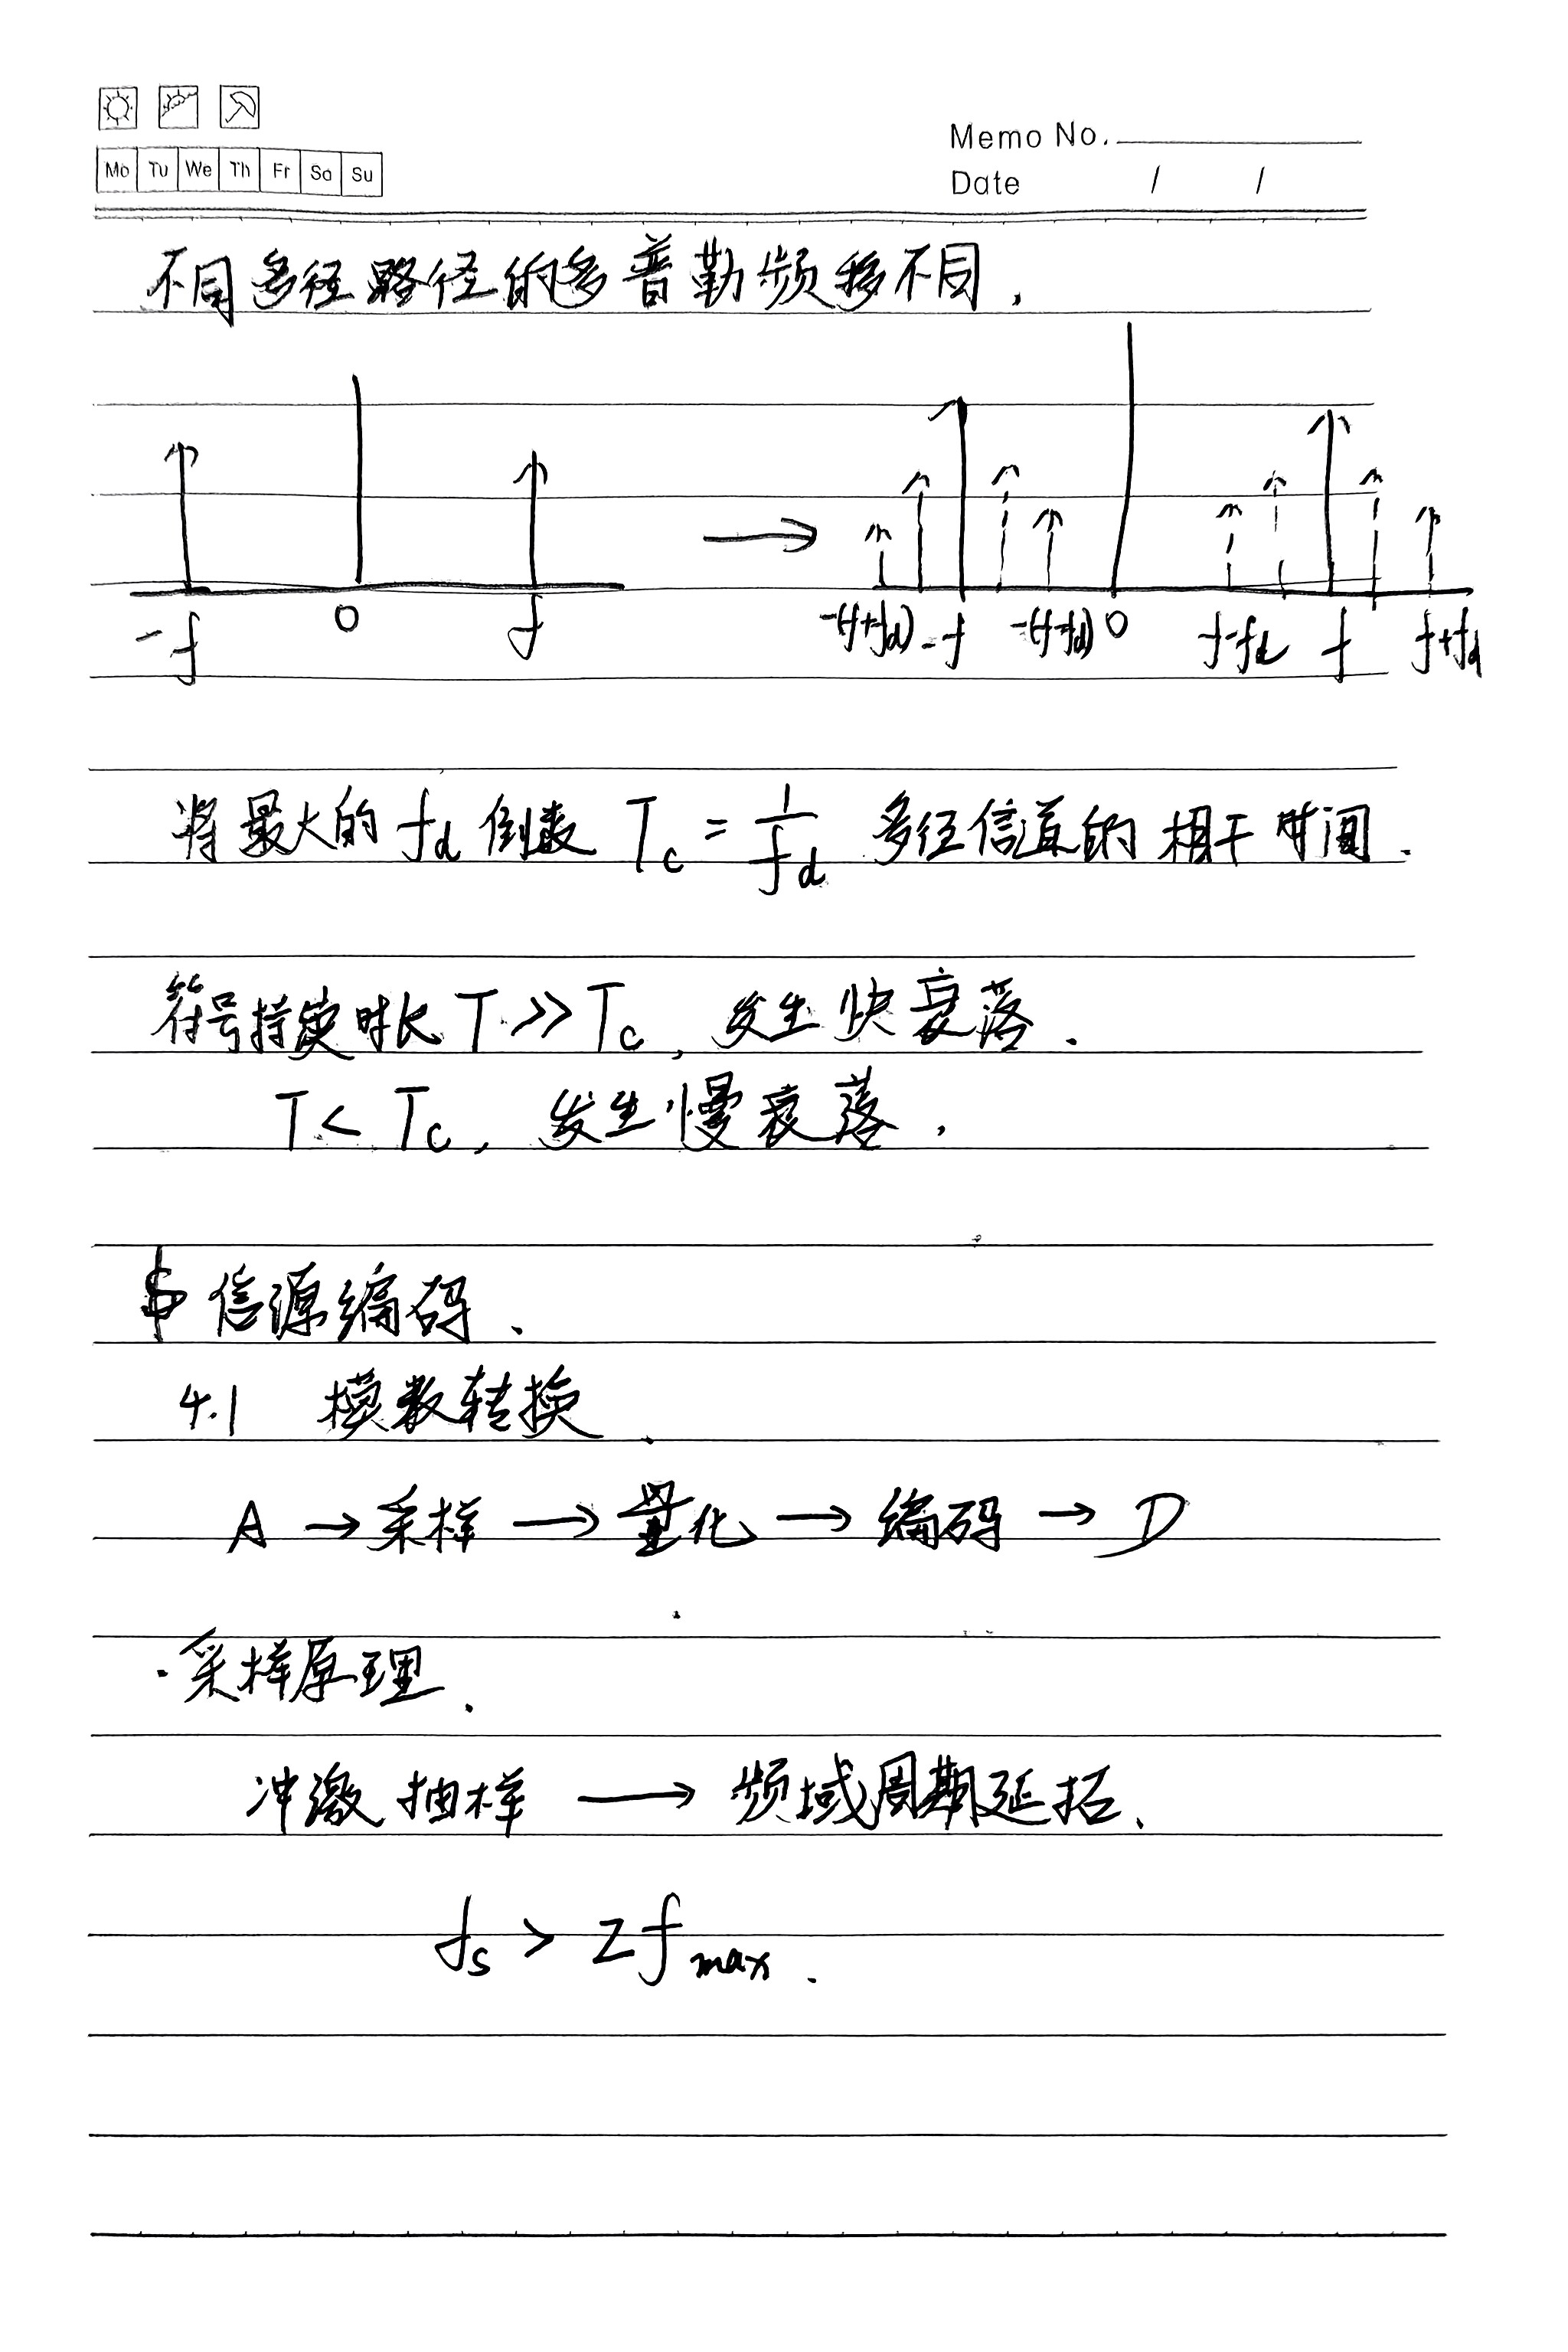 Memo No.
Mo Tu We Th Fr Sa Su
Date / /
不同多径路径的多普勒频移不同.
-f 0 f → -(f+fd) -f -(f-fd) 0 f-fd f f+fd
将最大的 fd 倒数 Tc = 1/fd 多径信道的相干时间.
符号持续时长 T >> Tc, 发生快衰落.
T < Tc, 发生慢衰落.
§ 信源编码.
4.1 模数转换.
A → 采样 → 量化 → 编码 → D
·采样原理.
冲激抽样 → 频域周期延拓.
fs > 2fmax.